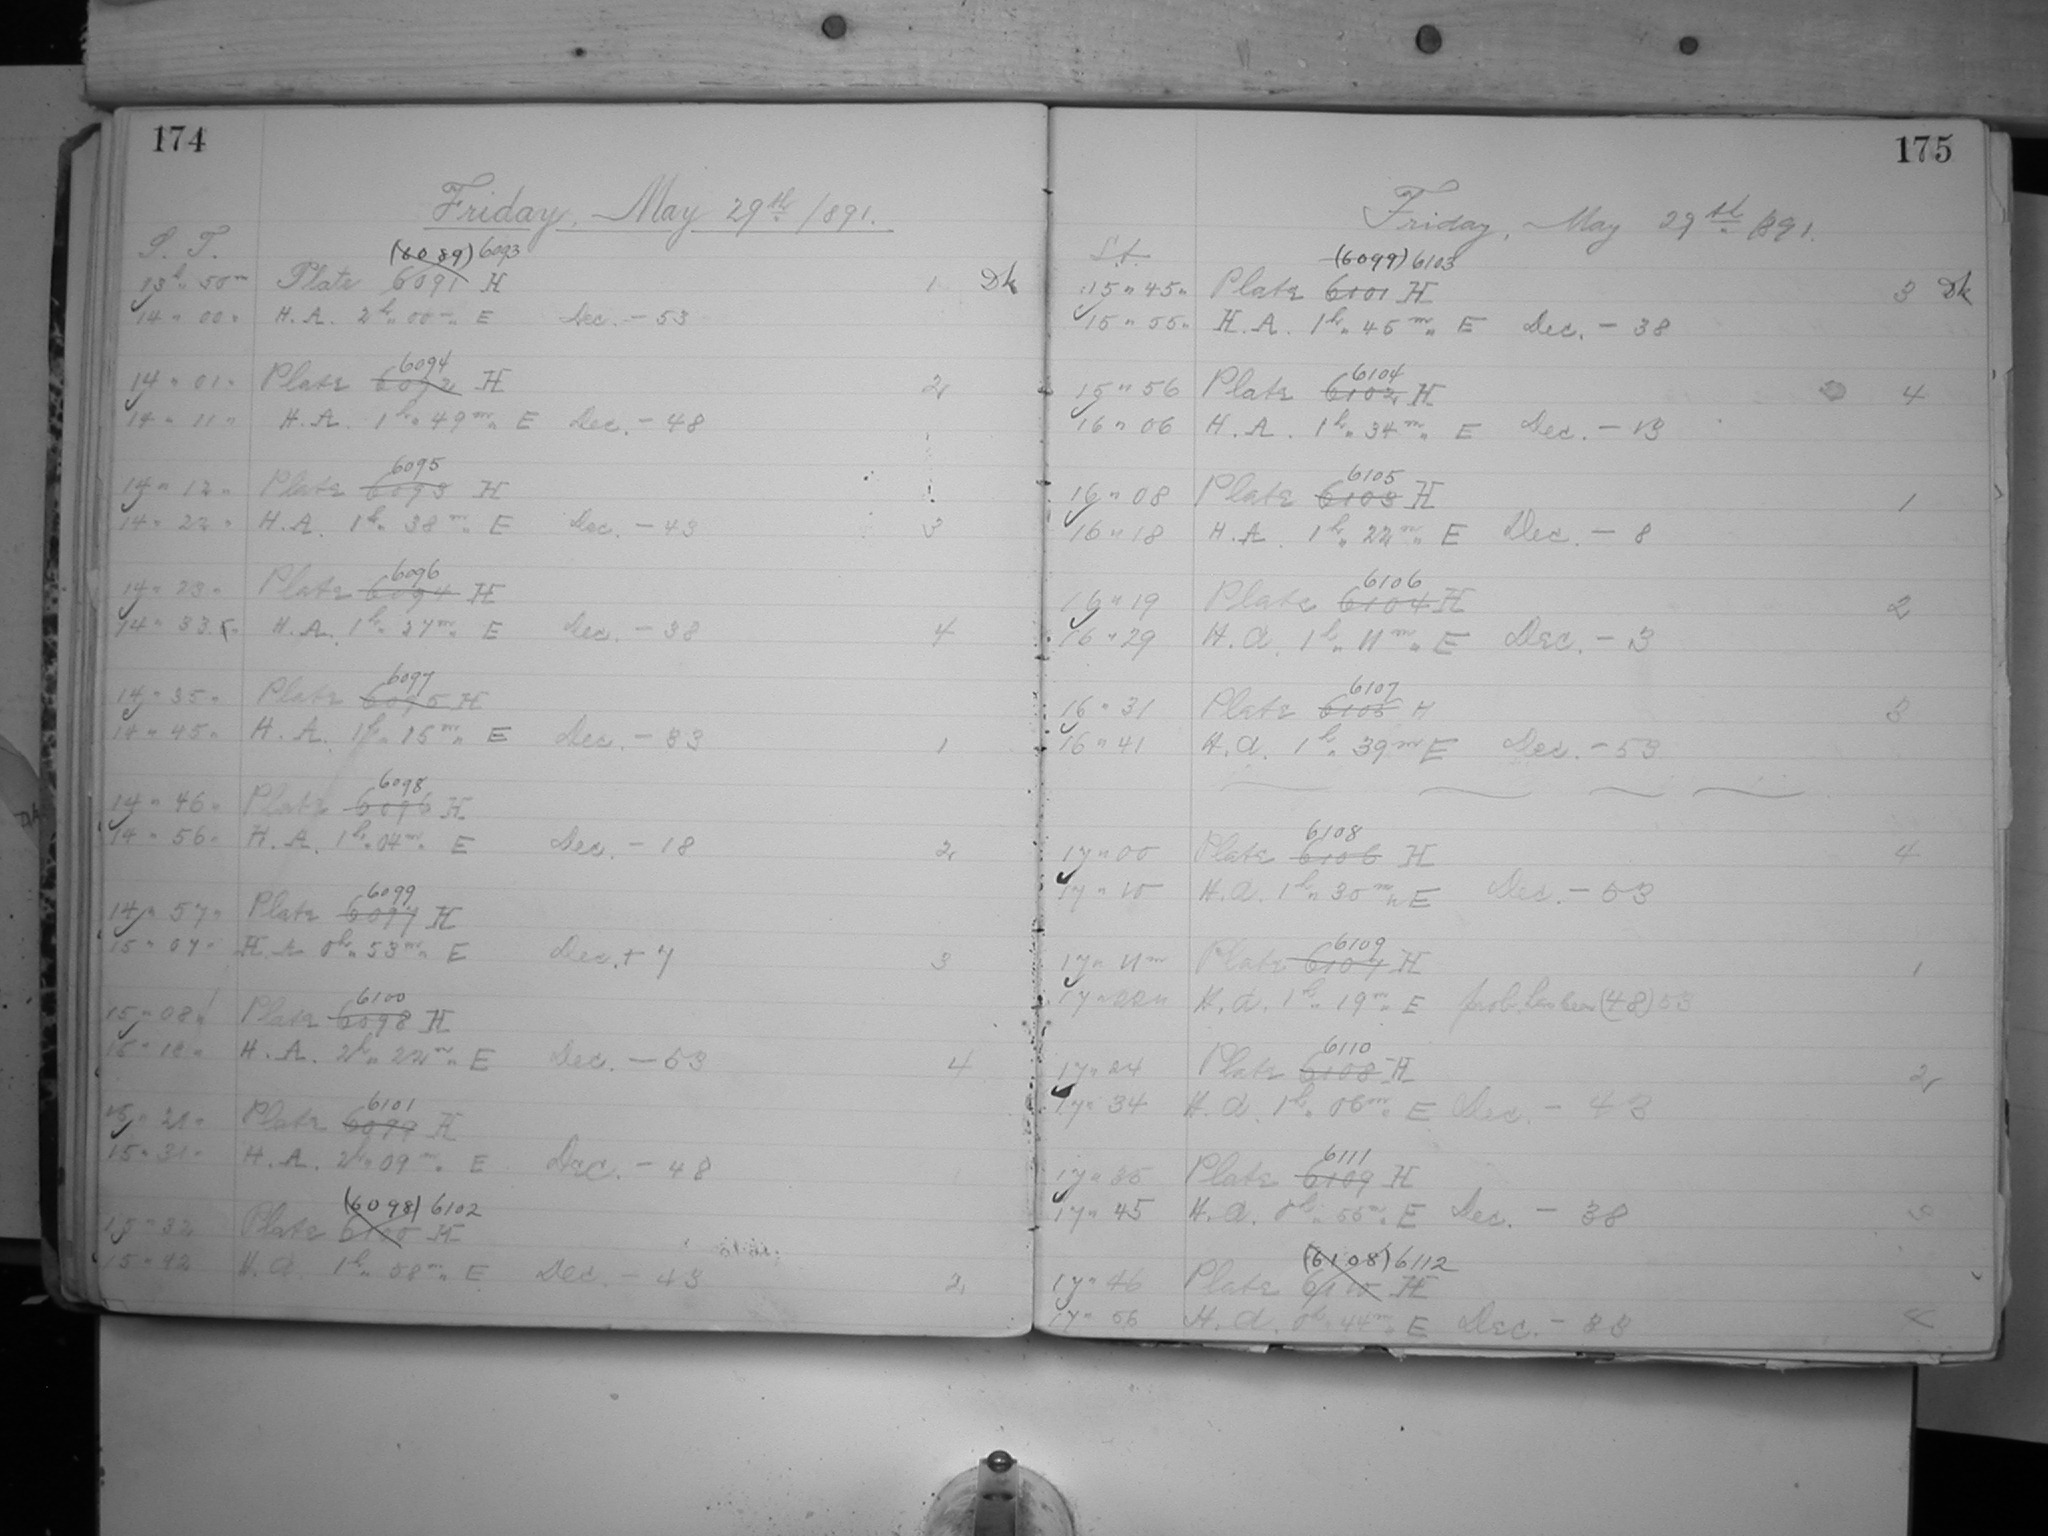 174
Friday, May 29th 1891.
S. T.
(6089) 6093
13h 50m Plate 6091 H 1 Dk
14 " 00 " H. A. 2h " 00m " E Dec. - 53
6094
14 " 01 " Plate 6092 H 2
14 " 11 " H. A. 1h " 49m " E Dec. - 48
6095
14 " 12 " Plate 6093 H
14 " 22 " H. A. 1h " 38m " E Dec. - 43 3
6096
14 " 23 " Plate 6094 H
14 " 33 " H. A. 1h " 27m " E Dec. - 38 4
6097
14 " 35 " Plate 6095 H
14 " 45 " H. A. 1h " 15m " E Dec. - 33 1
6098
14 " 46 " Plate 6096 H
14 " 56 " H. A. 1h " 04m " E Dec. - 18 2
6099
14 " 57 " Plate 6097 H
15 " 07 " H A 0h " 53m " E Dec. + 7 3
6100
15 " 08 " Plate 6098 H
15 " 18 " H. A. 2h " 22m " E Dec. - 53 4
6101
15 " 21 " Plate 6099 H
15 " 31 " H. A. 2h " 09m " E Dec. - 48
(6098) 6102
15 " 32 Plate 6100 H
15 " 42 H. A. 1h " 58m " E Dec. - 43 2
175
Friday, May 29th 1891.
S.t.
(6099) 6103
15 " 45 " Plate 6101 H 3 Dk
15 " 55 " H. A. 1h " 45m " E Dec. - 38
6104
15 " 56 Plate 6102 H 4
16 " 06 H. A. 1h " 34m " E Dec. - 13
6105
16 " 08 Plate 6103 H 1
16 " 18 H. A. 1h " 22m " E Dec. - 8
6106
16 " 19 Plate 6104 H 2
16 " 29 H. A. 1h " 11m " E Dec. - 3
6107
16 " 31 Plate 6105 H 3
16 " 41 H. A. 1h " 39m E Dec. - 53
6108
17 " 00 Plate 6106 H 4
17 " 10 H. A. 1h " 30m " E Dec. - 53
6109
17 " 11m Plate 6107 H 1
17 " 22 " H. A. 1h " 19m " E prob. has been (48) 53
6110
17 " 24 Plate 6108 H 2
17 " 34 H. A. 1h " 06m " E Dec. - 43
6111
17 " 35 Plate 6109 H
17 " 45 H. A. 0h " 55m " E Dec. - 38 3
(6108) 6112
17 " 46 Plate 6110 H
17 " 56 H. A. 0h " 44m " E Dec. - 33 4